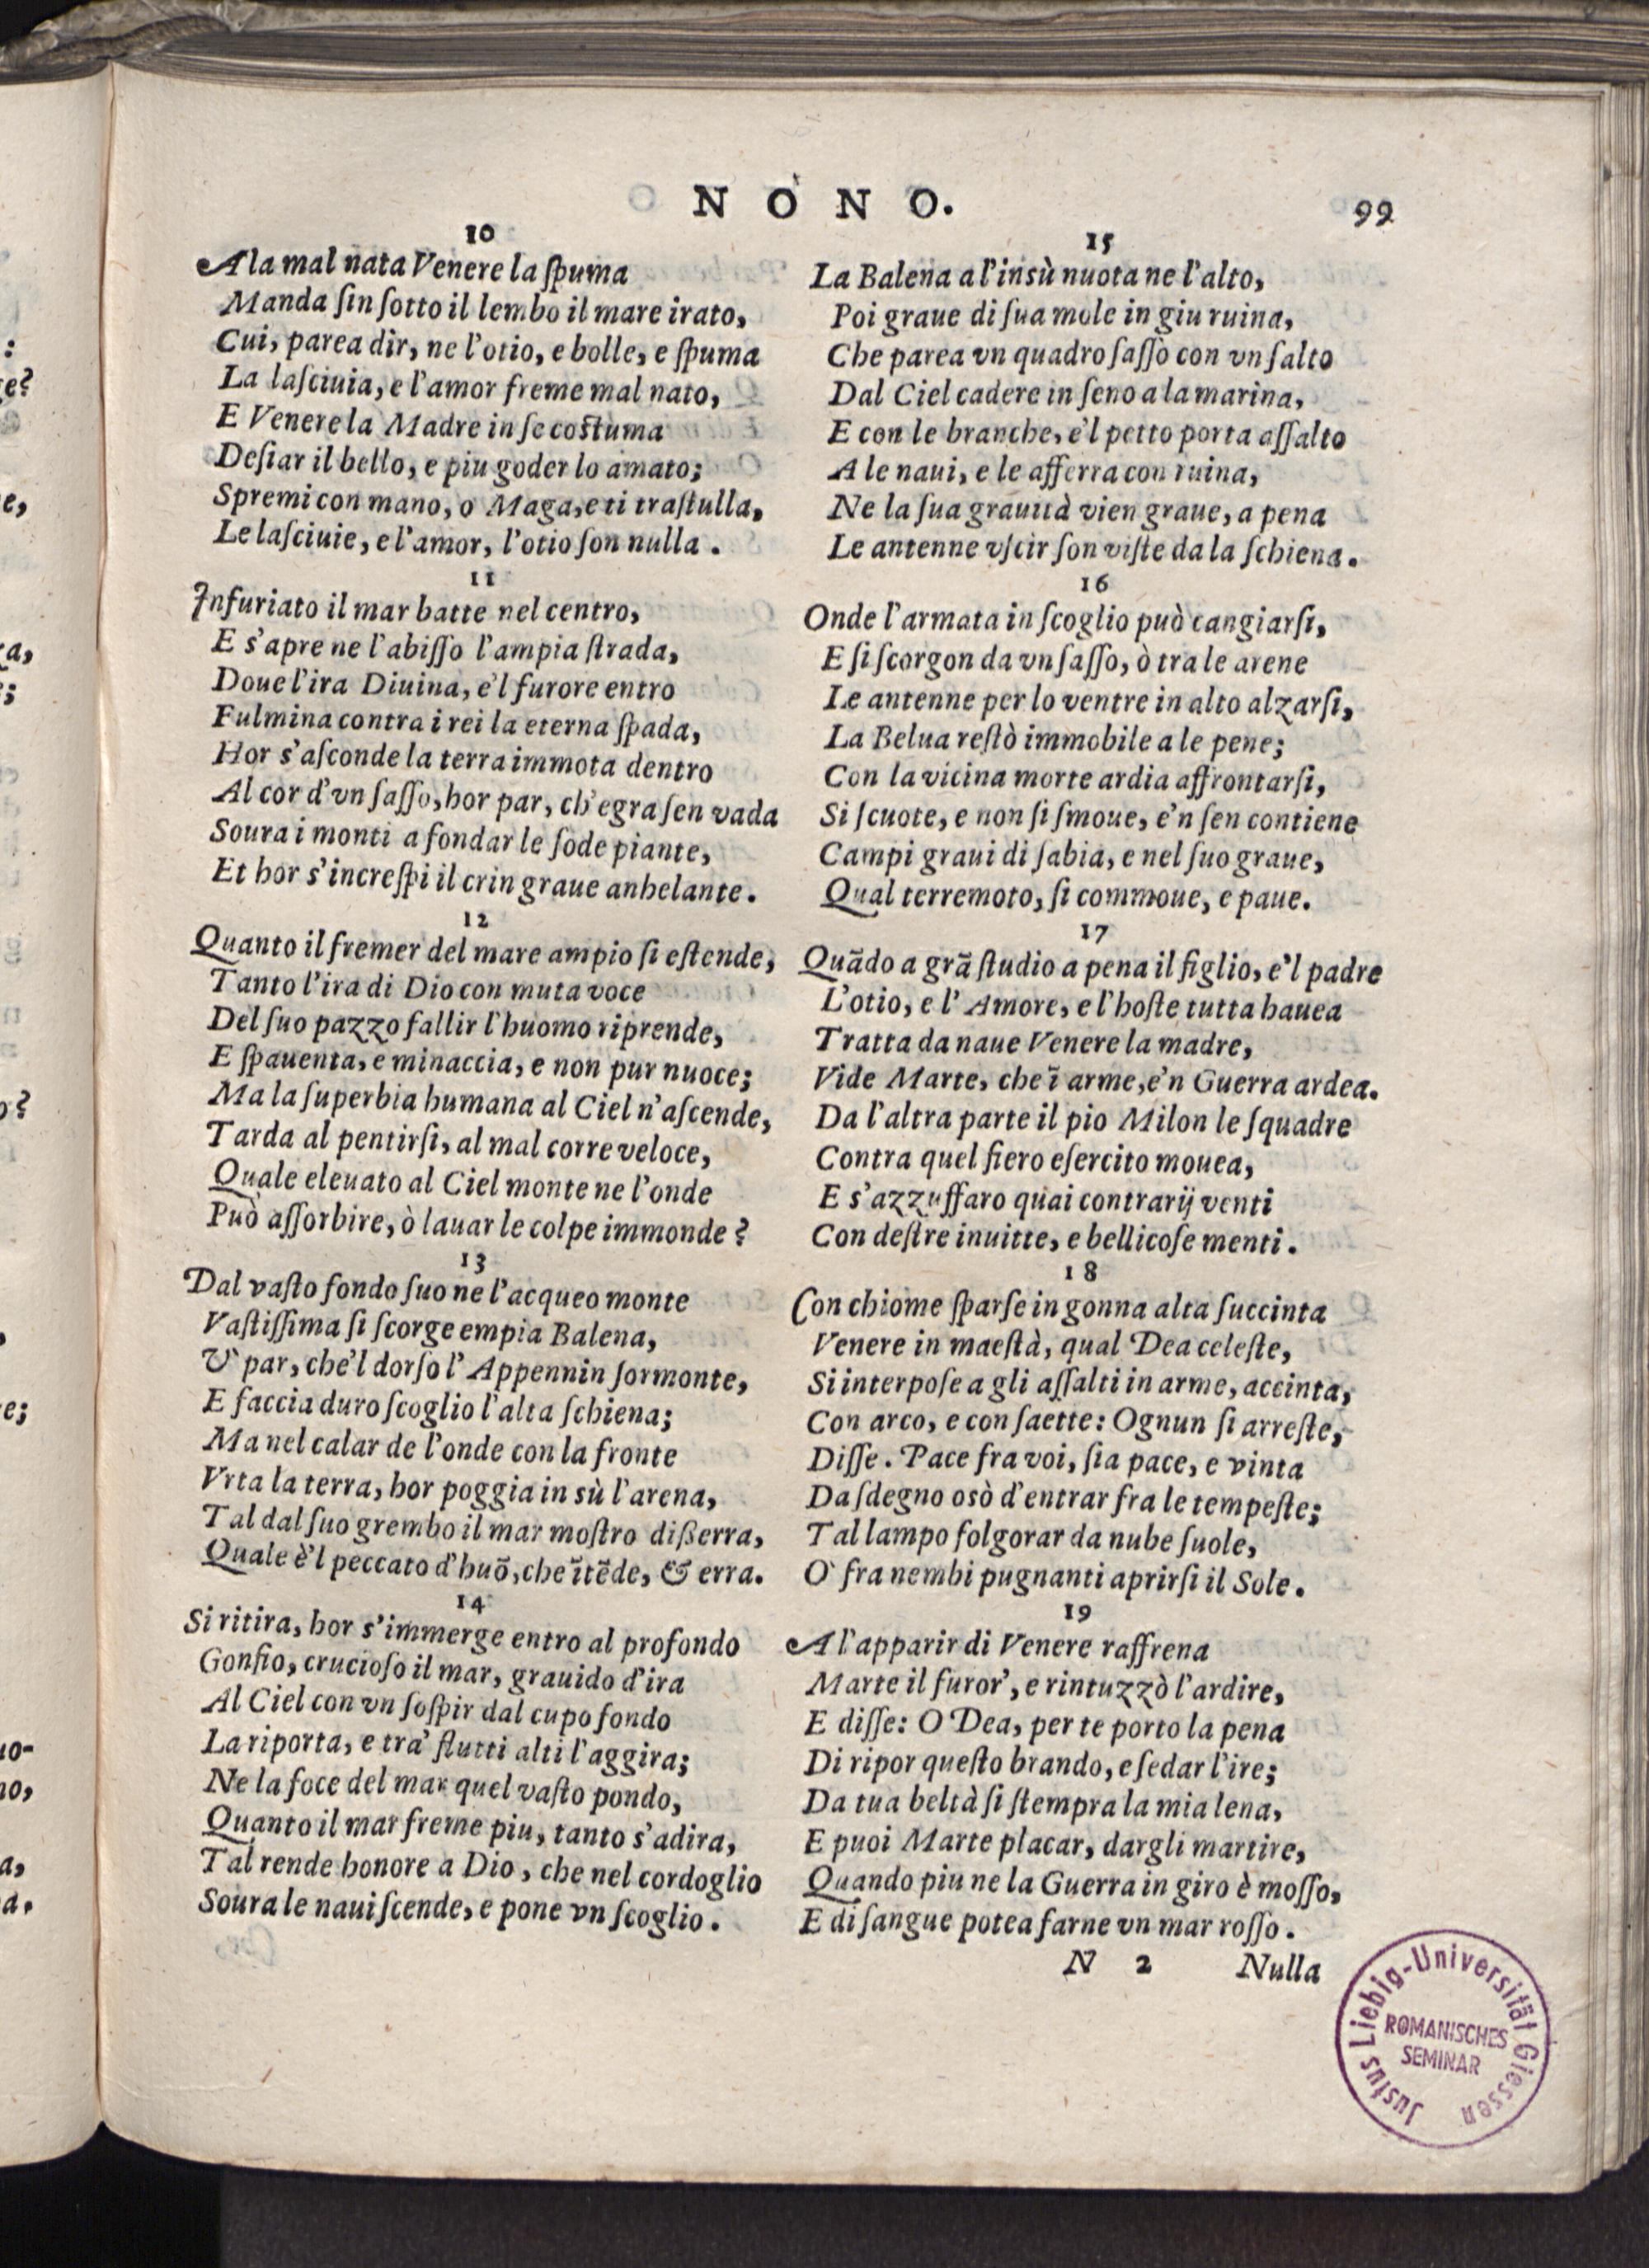 NONO.
99
10
A la mal nata Venere la ſpuma
Manda ſin ſotto il lembo il mare irato,
Cui, parea dir, ne l'otio, e bolle, e ſpuma
La laſciuia, e l'amor freme mal nato,
E Venere la Madre in ſe coſtuma
Deſiar il bello, e piu goder lo amato;
Spremi con mano, o Maga, e ti traſtulla,
Le laſciuie, e l'amor, l'otio ſon nulla.
11
Infuriato il mar batte nel centro,
E s'apre ne l'abiſſo l'ampia ſtrada,
Doue l'ira Diuina, e'l furore entro
Fulmina contra i rei la eterna ſpada,
Hor s'aſconde la terra immota dentro
Al cor d'vn ſaſſo, hor par, ch'egra ſen vada
Soura i monti a fondar le ſode piante,
Et hor s'increſpi il crin graue anhelante.
12
Quanto il fremer del mare ampio ſi eſtende,
Tanto l'ira di Dio con muta voce
Del ſuo pazzo fallir l'huomo riprende,
E ſpauenta, e minaccia, e non pur nuoce;
Ma la ſuperbia humana al Ciel n'aſcende,
Tarda al pentirſi, al mal corre veloce,
Quale eleuato al Ciel monte ne l'onde
Può aſſorbire, ò lauar le colpe immonde?
13
Dal vaſto fondo ſuo ne l'acqueo monte
Vaſtiſſima ſi ſcorge empia Balena,
V' par, che'l dorſo l'Appennin ſormonte,
E faccia duro ſcoglio l'alta ſchiena;
Ma nel calar de l'onde con la fronte
Vrta la terra, hor poggia in sù l'arena,
Tal dal ſuo grembo il mar moſtro dißerra,
Quale è'l peccato d'huō, che ītēde, & erra.
14
Si ritira, hor s'immerge entro al profondo
Gonfio, crucioſo il mar, grauido d'ira
Al Ciel con vn ſoſpir dal cupo fondo
La riporta, e tra' flutti alti l'aggira;
Ne la foce del mar quel vaſto pondo,
Quanto il mar freme piu, tanto s'adira,
Tal rende honore a Dio, che nel cordoglio
Soura le naui ſcende, e pone vn ſcoglio.
15
La Balena a l'insù nuota ne l'alto,
Poi graue di ſua mole in giu ruina,
Che parea vn quadro ſaſſo con vn ſalto
Dal Ciel cadere in ſeno a la marina,
E con le branche, e'l petto porta aſſalto
A le naui, e le afferra con ruina,
Ne la ſua grauità vien graue, a pena
Le antenne vſcir ſon viſte da la ſchiena.
16
Onde l'armata in ſcoglio può cangiarſi,
E ſi ſcorgon da vn ſaſſo, ò tra le arene
Le antenne per lo ventre in alto alzarſi,
La Belua reſtò immobile a le pene;
Con la vicina morte ardia affrontarſi,
Si ſcuote, e non ſi ſmoue, e'n ſen contiene
Campi graui di ſabia, e nel ſuo graue,
Qual terremoto, ſi commoue, e paue.
17
Quādo a grā ſtudio a pena il figlio, e'l padre
L'otio, e l'Amore, e l'hoſte tutta hauea
Tratta da naue Venere la madre,
Vide Marte, che ī arme, e'n Guerra ardea.
Da l'altra parte il pio Milon le ſquadre
Contra quel fiero eſercito mouea,
E s'azzuffaro quai contrarij venti
Con deſtre inuitte, e bellicoſe menti.
18
Con chiome ſparſe in gonna alta ſuccinta
Venere in maeſtà, qual Dea celeſte,
Si interpoſe a gli aſſalti in arme, accinta,
Con arco, e con ſaette: Ognun ſi arreſte,
Diſſe. Pace fra voi, ſia pace, e vinta
Da ſdegno osò d'entrar fra le tempeſte;
Tal lampo folgorar da nube ſuole,
O' fra nembi pugnanti aprirſi il Sole.
19
A l'apparir di Venere raffrena
Marte il furor', e rintuzzò l'ardire,
E diſſe: O Dea, per te porto la pena
Di ripor queſto brando, e ſedar l'ire;
Da tua beltà ſi ſtempra la mia lena,
E puoi Marte placar, dargli martire,
Quando piu ne la Guerra in giro è moſſo,
E di ſangue potea farne vn mar roſſo.
N 2 Nulla
Justus Liebig-Universität Giessen
ROMANISCHES
SEMINAR